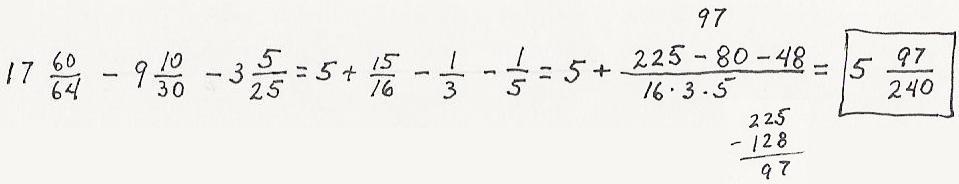 97
17 60/64 - 9 10/30 - 3 5/25 = 5 + 15/16 - 1/3 - 1/5 = 5 + (225 - 80 - 48)/(16 · 3 · 5) = 5 97/240
225
- 128
97